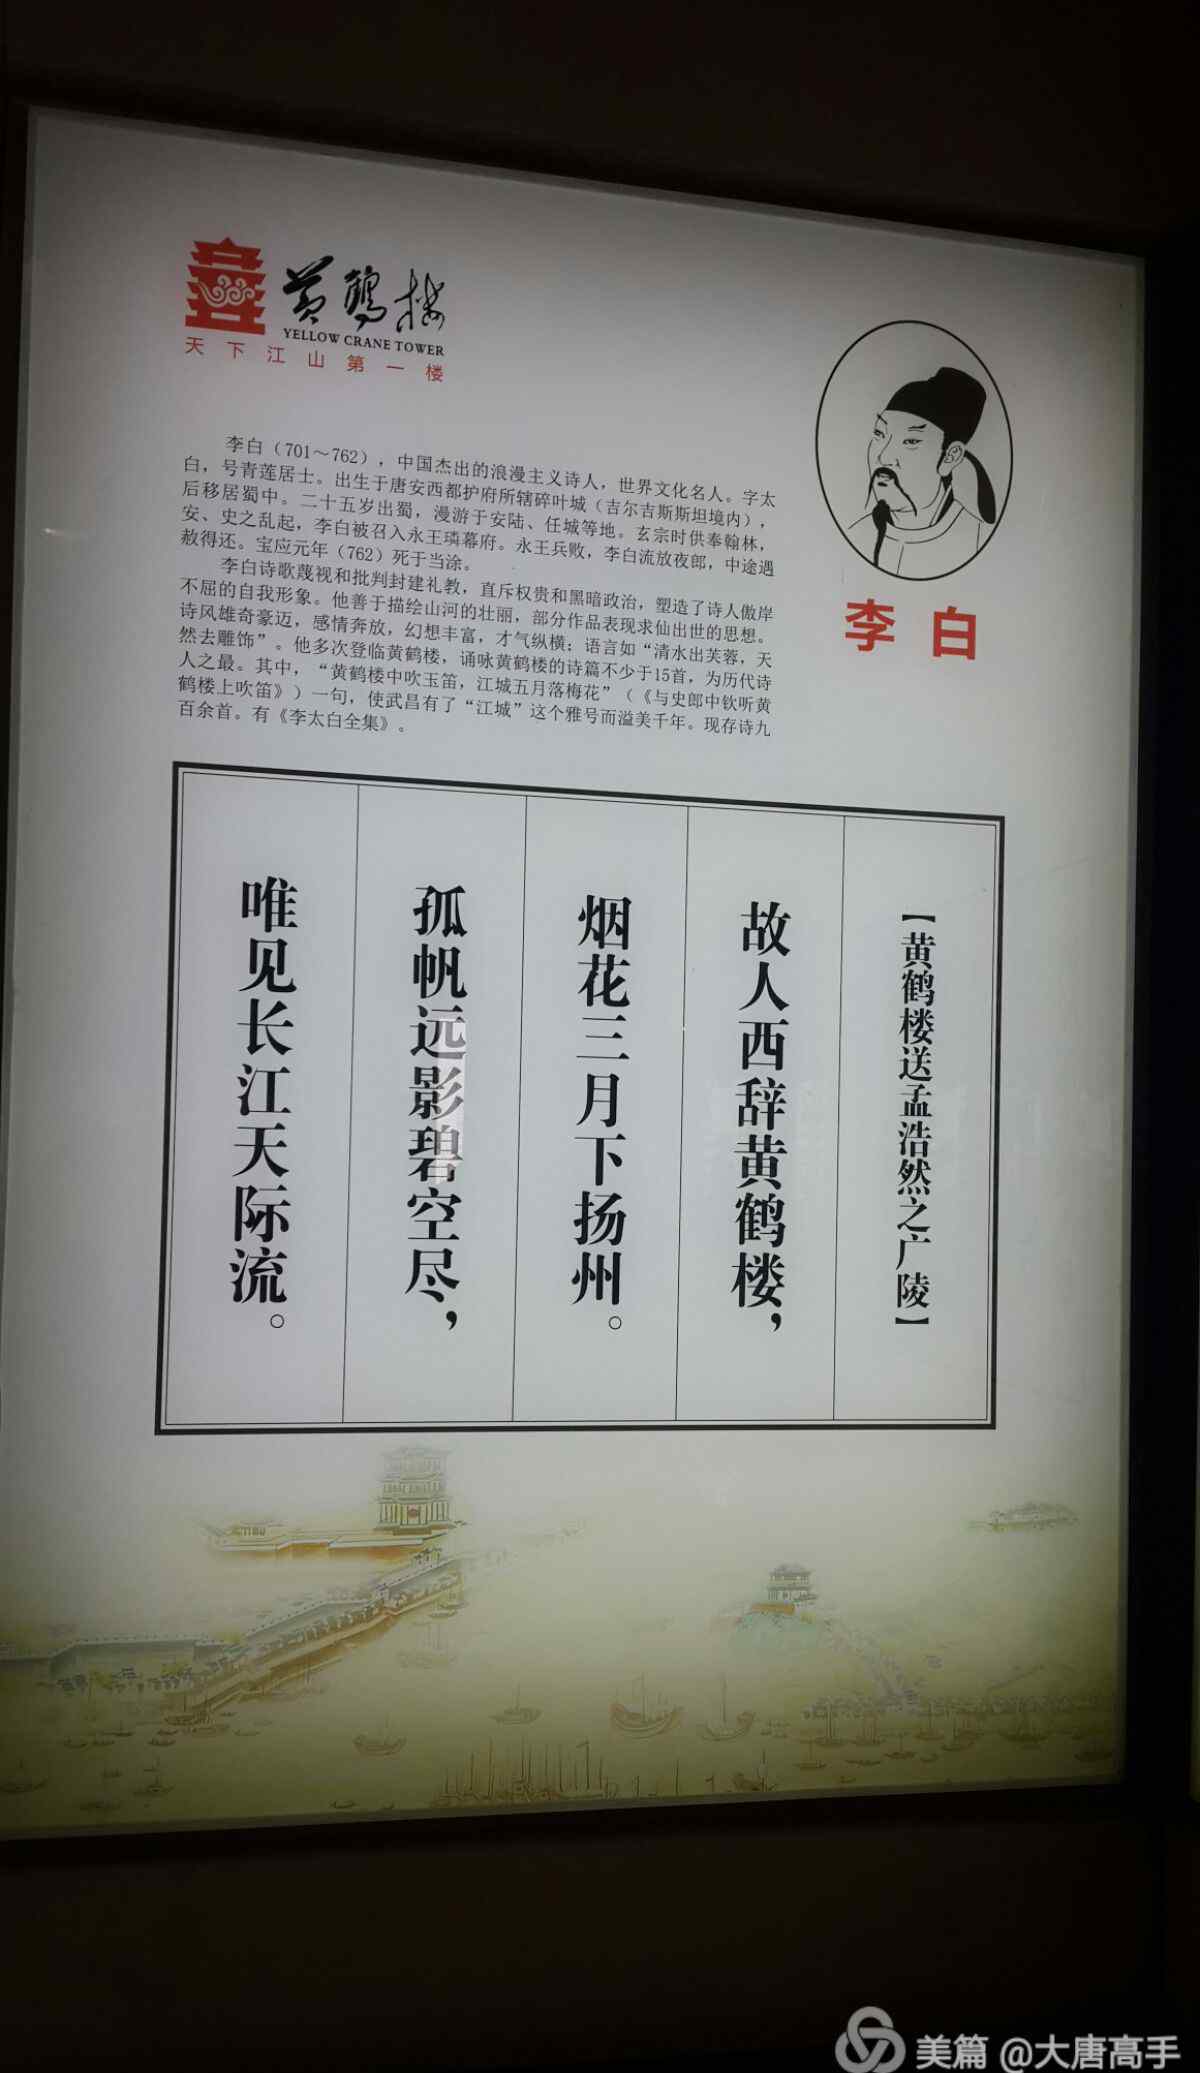 黄鹤楼
YELLOW CRANE TOWER
天下江山第一楼
李白
李白（701～762），中国杰出的浪漫主义诗人，世界文化名人。字太
白，号青莲居士。出生于唐安西都护府所辖碎叶城（吉尔吉斯斯坦境内），
后移居蜀中。二十五岁出蜀，漫游于安陆、任城等地。玄宗时供奉翰林，
安、史之乱起，李白被召入永王璘幕府。永王兵败，李白流放夜郎，中途遇
赦得还。宝应元年（762）死于当涂。
李白诗歌蔑视和批判封建礼教，直斥权贵和黑暗政治，塑造了诗人傲岸
不屈的自我形象。他善于描绘山河的壮丽，部分作品表现求仙出世的思想。
诗风雄奇豪迈，感情奔放，幻想丰富，才气纵横；语言如“清水出芙蓉，天
然去雕饰”。他多次登临黄鹤楼，诵咏黄鹤楼的诗篇不少于15首，为历代诗
人之最。其中，“黄鹤楼中吹玉笛，江城五月落梅花”（《与史郎中钦听黄
鹤楼上吹笛》）一句，使武昌有了“江城”这个雅号而溢美千年。现存诗九
百余首。有《李太白全集》。
【黄鹤楼送孟浩然之广陵】
故人西辞黄鹤楼，
烟花三月下扬州。
孤帆远影碧空尽，
唯见长江天际流。
美篇 @大唐高手